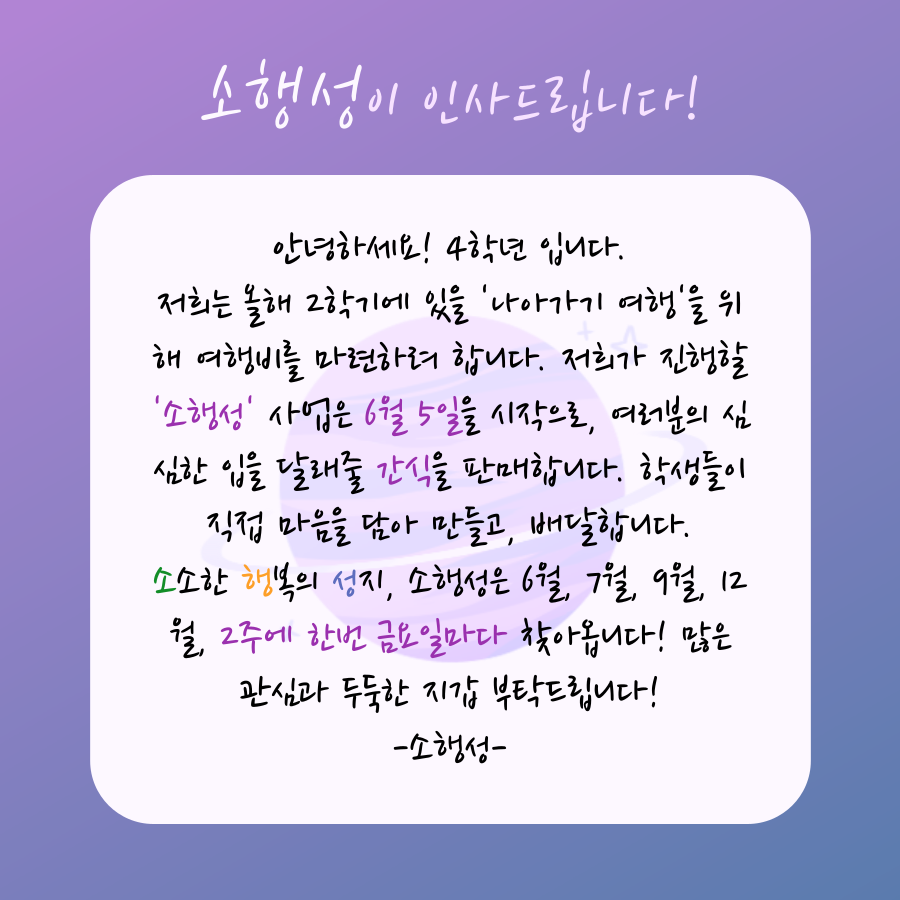 소행성이 인사드립니다!
안녕하세요! 4학년 입니다.
저희는 올해 2학기에 있을 '나아가기 여행'을 위
해 여행비를 마련하려 합니다. 저희가 진행할
'소행성' 사업은 6월 5일을 시작으로, 여러분의 심
심한 입을 달래줄 간식을 판매합니다. 학생들이
직접 마음을 담아 만들고, 배달합니다.
소소한 행복의 성지, 소행성은 6월, 7월, 9월, 12
월, 2주에 한번 금요일마다 찾아옵니다! 많은
관심과 두둑한 지갑 부탁드립니다!
-소행성-